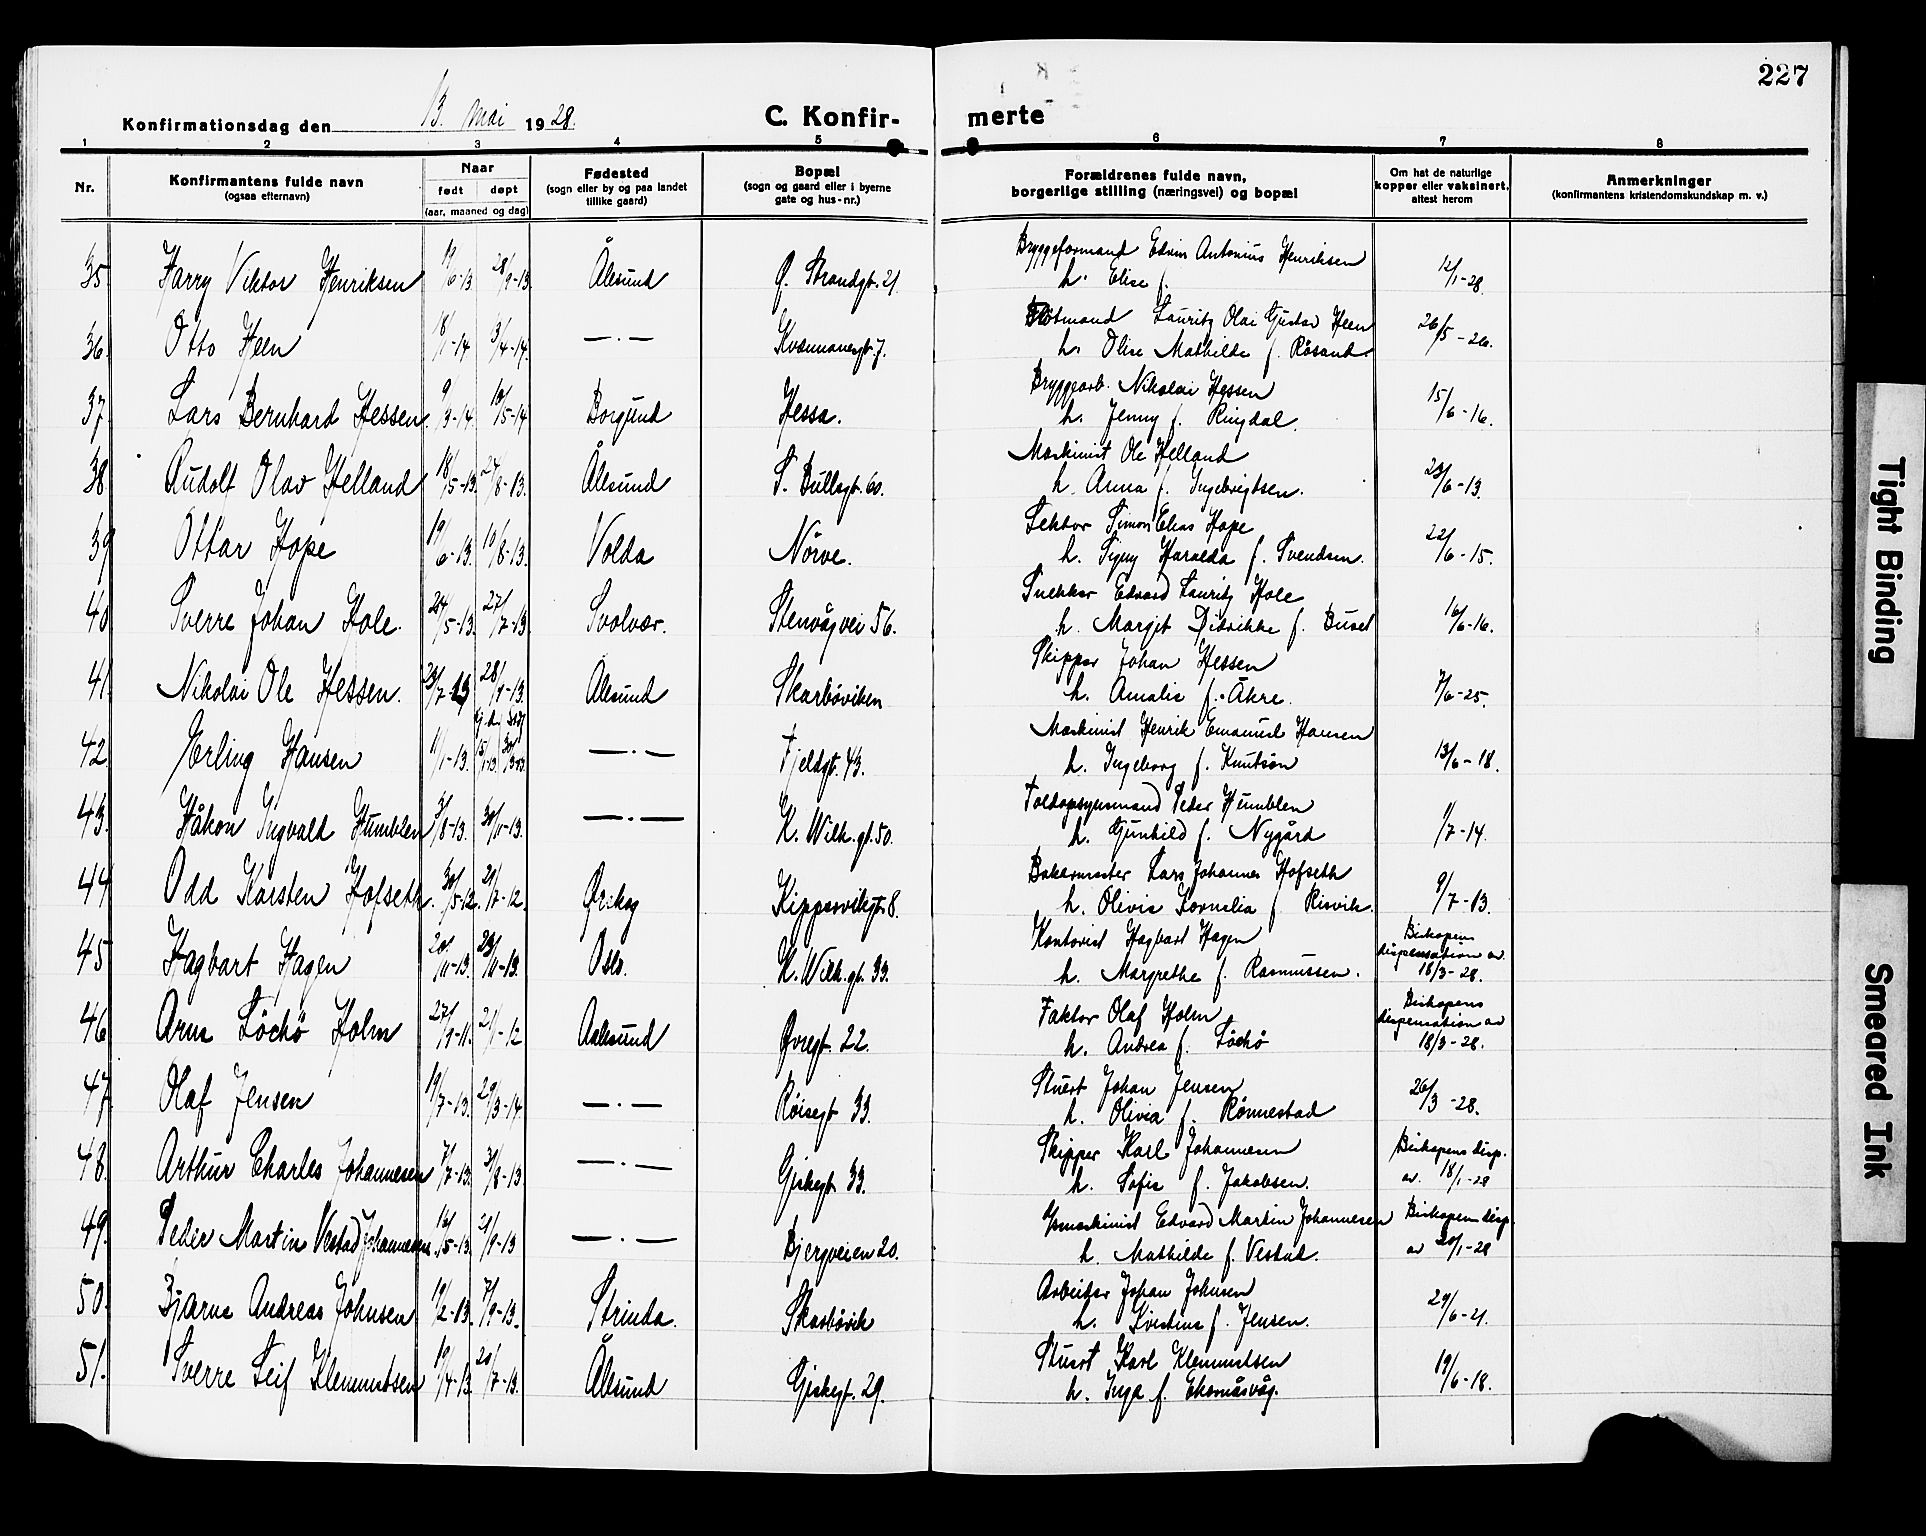 227
Konfirmationsdag den 13. mai 1928.
C. Konfir-
merte
1 2 3 4 5 6 7 8
Nr.
Konfirmantens fulde navn
(ogsaa efternavn)
Naar
født døpt
(aar, maaned og dag)
Fødested
(sogn eller by og paa landet
tillike gaard)
Bopæl
(sogn og gaard eller i byerne
gate og hus-nr.)
Forældrenes fulde navn,
borgerlige stilling (næringsvei) og bopæl
Om hat de naturlige
kopper eller vaksinert,
attest herom
Anmerkninger
(konfirmantens kristendomskundskap m. v.)
Bryggeformand Edvin Antonius Henriksen
35 Harry Viktor Henriksen 19/6-13 28/9-13 Ålesund Ø. Strandgt. 21. h. Elise f. 12/1-28.
Lauritz Olai Gustav Heen
36. Otto Heen 18/1-14 13/4-14 —.— 7. h. Olise Mathilde f. Røsand. 26/5-26.
Bryggearb. Nikolai Hessen
37. Lars Bernhard Hessen. 9/3-14. 10/5-14 Borgund Hessa. h. Jenny f. Ringdal. 15/6-16.
Maskinist Ole Helland
38 Rudolf Olav Helland 18/5-13. 24/8-13. Ålesund S. Bullsgt. 60. h. Anna f. Ingebrigtsen. 23/6-13.
Lektor Simon Elias Hope
39 Ottar Hope 19/6-13. 10/8-13. Volda Nörve. h. Signy Haralda f. Svendsen. 22/6-15.
Snekker Edvard Lauritz Hole
40 Sverre Johan Hole. 24/5-13. 27/7-13. Svolvær. Stenvågvei 56. h. Margit Didrikke f. Buset 16/6-16.
Skipper Johan Hessen
41. Nikolai Ole Hessen. 23/7-13 28/9-13. Ålesund Skarböviken h. Amalie f. Åkre. 7/6-25.
Maskinist Henrik Emanuel Hansen
42. Erling Hansen 11/1-13. —.— Fjeldgt. 43. h. Ingeborg f. Knutsön 13/6-18.
Toldopsynsmand Peder Humblen
43. Håkon Ingvald Humblen 3/8-13. 30/11-13. —.— K. Wilh. gt. 50. h. Gunhild f. Nygård 1/7-14.
Bakermester Lars Johannes Hofseth
44 Odd Karsten Hofseth. 30/5-12. 21/7-12. Ørskog Kippervikgt. 8. h. Olivia Kornelia f. Risvik. 9/7-13.
Kontorist Hagbart Hagen Biskopens
dispensation av
45 Hagbart Hagen 20/10-13. Oslo. K. Wilh. gt. 33. h. Margrethe f. Rasmussen. 18/3-28.
Faktor Olaf Holm Biskopens
dispensation av
46 Arne Löchö Holm 27/9-11. 21/1-12 Aalesund Øvregt. 22. h. Andrea f. Löchö 18/3-28.
Stuert Johan Jensen
47. Olaf Jensen 19/7-13. 29/3-14. —.— Röisegt 33. h. Olivia f. Rönnestad 26/3-28.
Skipper Karl Johannesen Biskopens disp.
48. Arthur Charles Johannesen 7/7-13. 31/8-13 —.— Giskegt 33. h. Sofie f. Jakobsen. av. 18/1-28
Edvard Martin Johannesen Biskopens disp.
49. Peder Martin Vestad Johannesen. 12/5-13. 21/9-13 —.— Bjergveien 20. h. Mathilde f. Vestad. av 20/1-28
Arbeider Johan Johnsen
50. Bjarne Andreas Johnsen 19/2-13. 7/9-13. Strinda. Skarbövik h. Kristine f. Jensen. 29/6-21.
Stuert Karl Klemmetsen
51. Sverre Leif Klemmetsen 19/4-13. 20/7-13. Ålesund Giskegt. 29. h. Inga f. 19/6-18.
Tight Binding
Smeared Ink